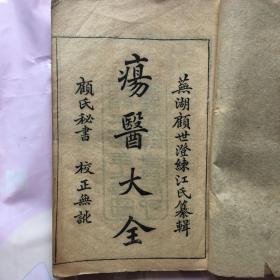 蕪湖顧世澄練江氏纂輯
瘍醫大全
顧氏秘書 校正無訛